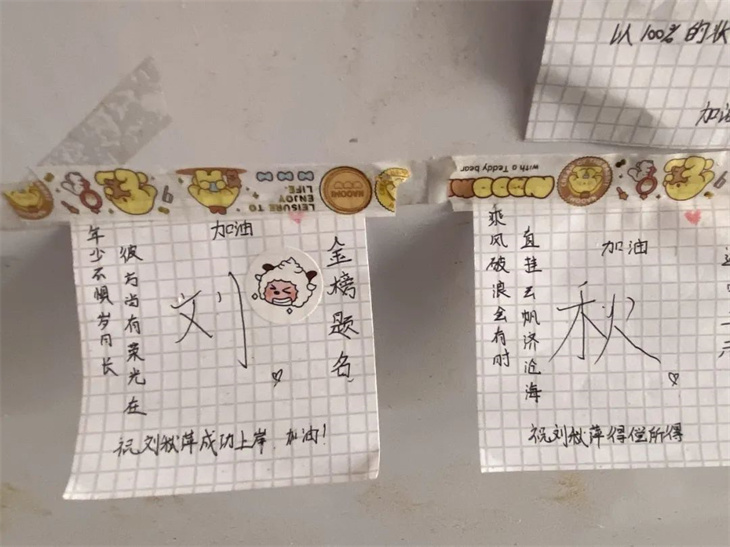 以100%的状
加油
LEISURE TO
ENJOY
LIFE.
with a Teddy bear
加油
年少不惧岁月长
彼方尚有荣光在
刘
金榜题名
祝刘秋萍成功上岸 加油!
加油
乘风破浪会有时
直挂云帆济沧海
秋
祝刘秋萍得偿所得